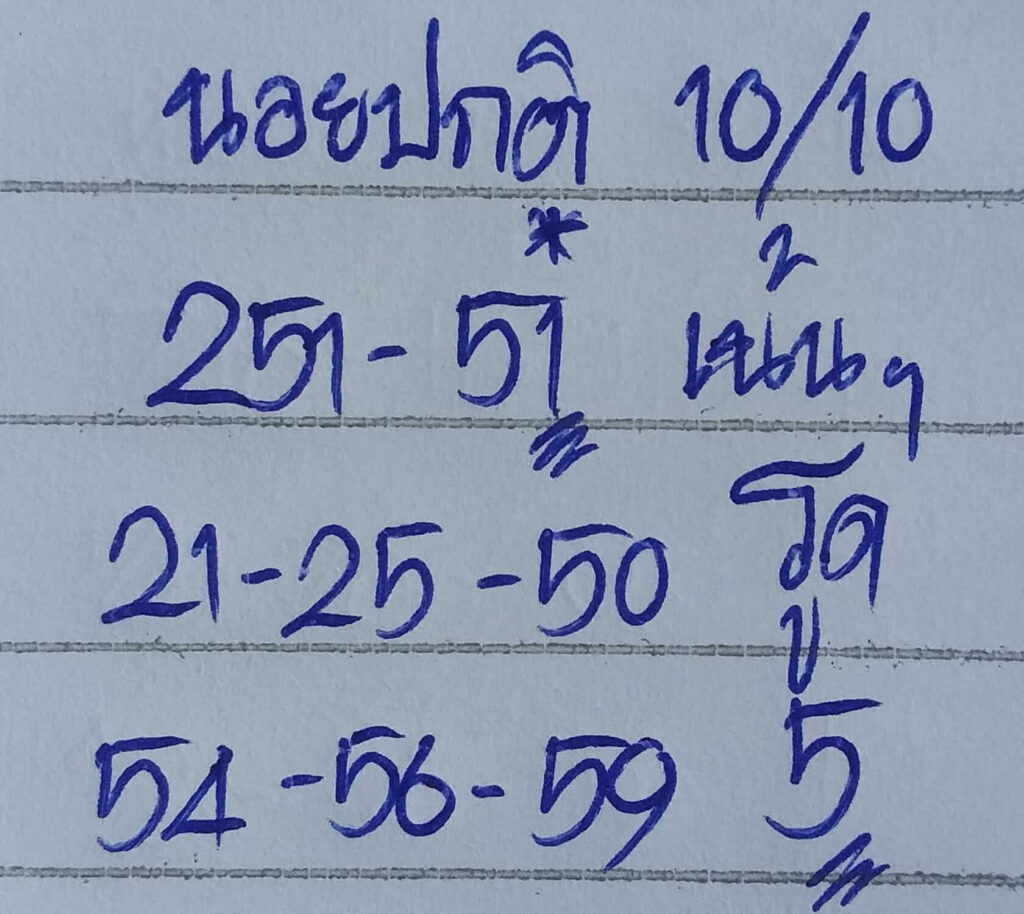 นอยปกติ 10/10
251-51 * เน้นๆ
21-25-50 รูด
54-56-59 5